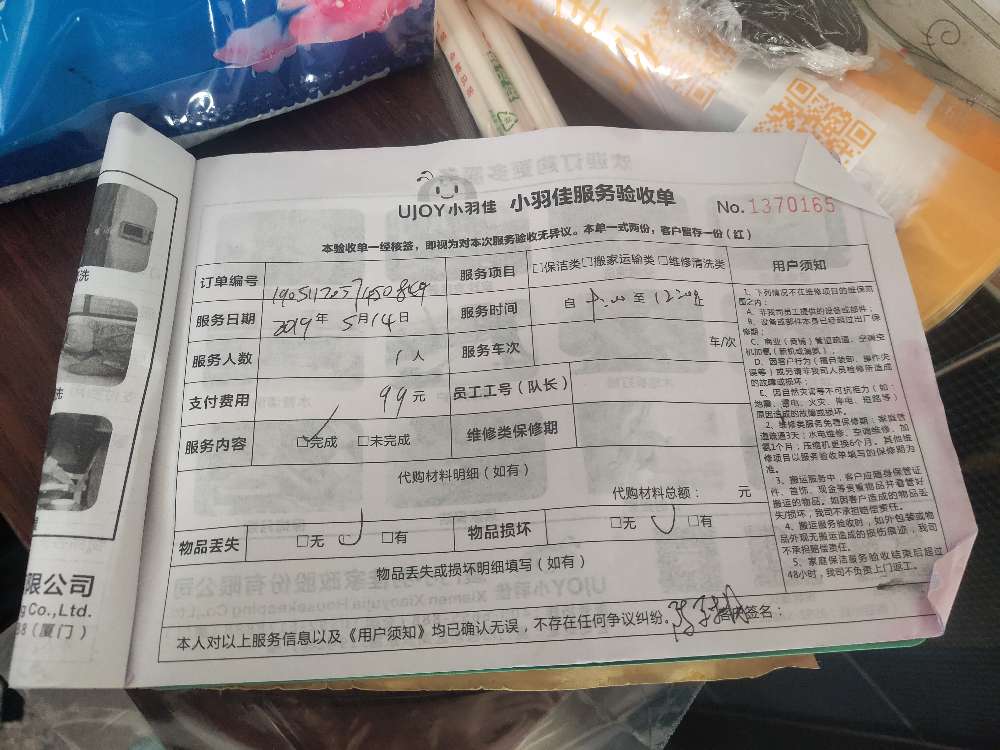 UJOY小羽佳 小羽佳服务验收单
No.1370165
本验收单一经核签，即视为对本次服务验收无异议。本单一式两份，客户留存一份（红）
订单编号
服务项目 □保洁类□搬家运输类□维修清洗类
服务日期 2019年 5月14日
服务时间 自 至 止
服务人数 1人
服务车次 车/次
支付费用 99元
员工工号（队长）
服务内容 □完成 □未完成
维修类保修期
代购材料明细（如有）
代购材料总额： 元
物品丢失 □无 □有
物品损坏 □无 □有
物品丢失或损坏明细填写（如有）
本人对以上服务信息以及《用户须知》均已确认无误，不存在任何争议纠纷。
签名：
用户须知
1、下列情况不在维修项目的维保范
围之内：
A、非我司员工提供的设备或部件；
B、设备或部件本身已经超过出厂保
修期；
C、商业（商铺）管道疏通、空调空
机加氟（新机或漏氟）；
D、因客户行为（擅自装卸、操作失
误等）或另请非我司人员检修所造成
的故障或损坏；
E、因自然灾害等不可抗力（如：
地震、雷电、火灾、停电、短路等）
原因造成的故障或损坏。
2、维修类服务免费保修期：家庭管
道疏通3天；水电维修、空调维修、加
氟1个月；压缩机更换6个月。其他维
修项目以服务验收单填写的保修期为
准。
3、搬运服务中，客户应随身保管证
件、首饰、现金等贵重物品并看管好
搬运的物品。如因客户造成的物品丢
失/损坏，我司不承担赔偿责任。
4、搬运服务验收时，如外包装或物
品外观无搬运造成的损伤痕迹，我司
不承担赔偿责任。
5、家庭保洁服务验收结束后超过
48小时，我司不负责上门返工。
限公司
Co.,Ltd.
（厦门）